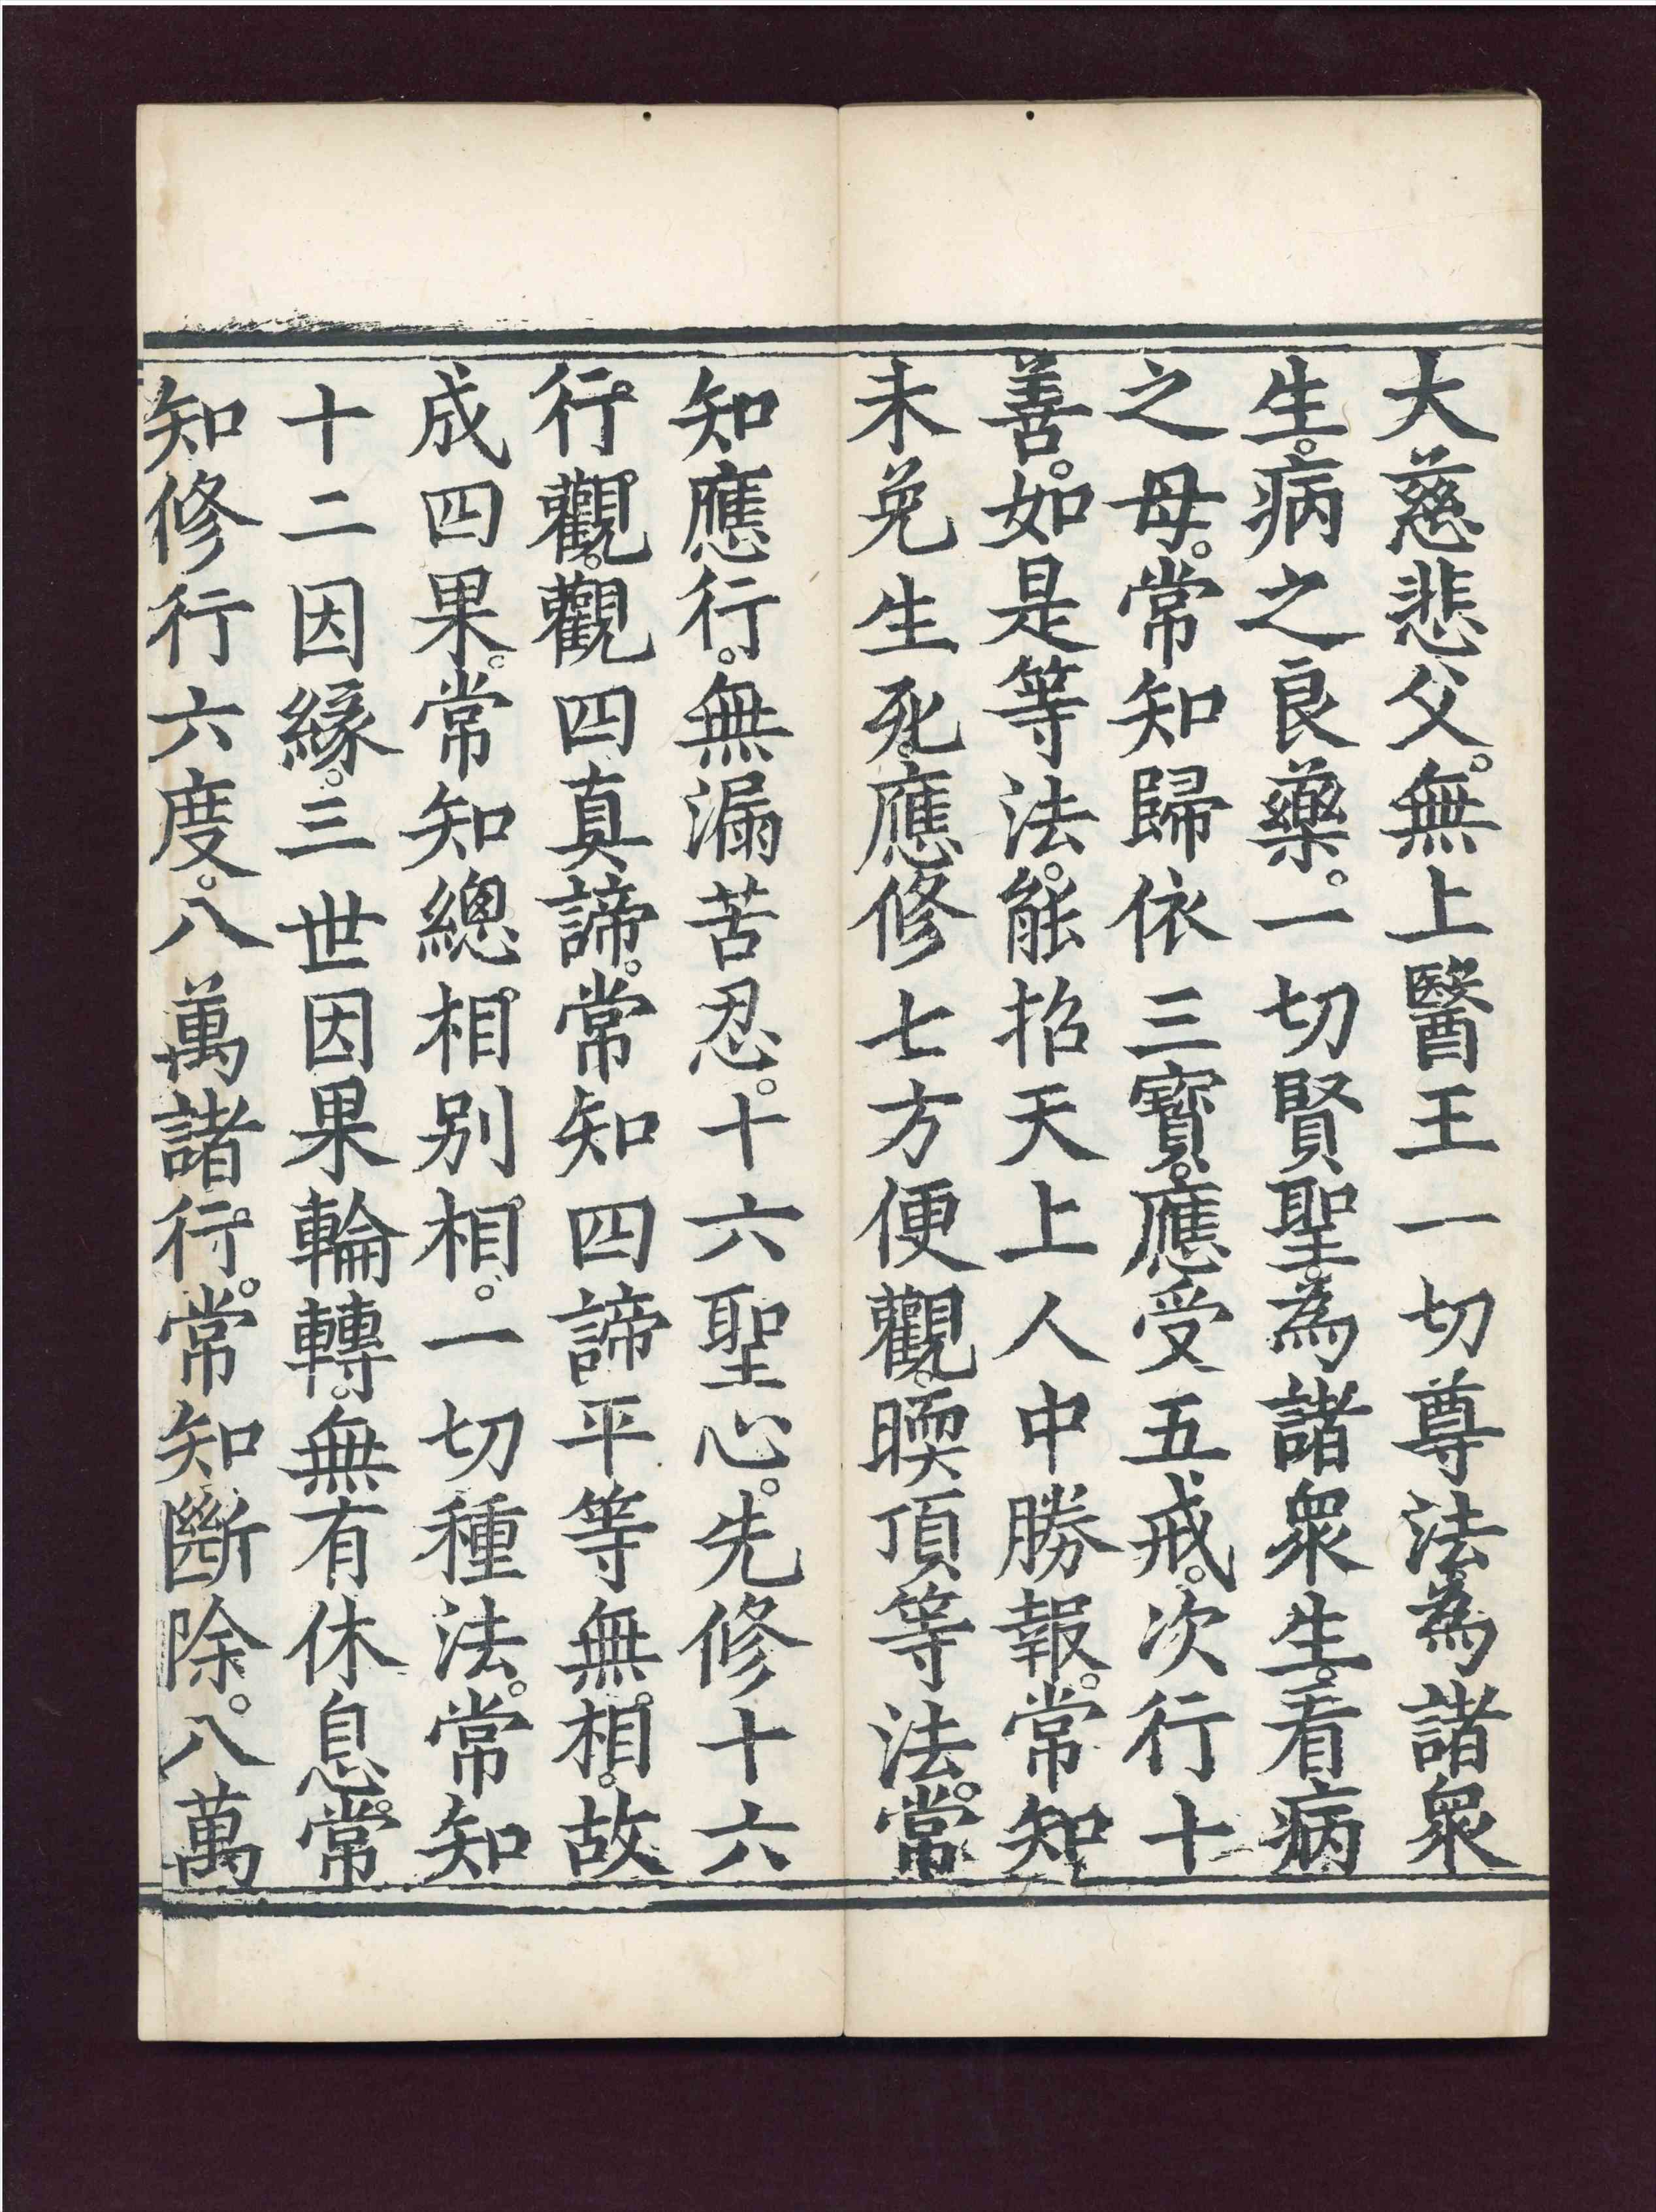 大慈悲父。無上醫王一切尊法為諸衆
生。病之良藥。一切賢聖。為諸衆生。看病
之母。常知歸依三寶。應受五戒。次行十
善。如是等法。能招天上人中勝報。常知
未免生死。應修七方便觀。暝頂等法。常
知應行。無漏苦忍。十六聖心。先修十六
行觀。觀四真諦。常知四諦平等無相。故
成四果。常知總相别相。一切種法。常知
十二因緣。三世因果輪轉。無有休息。常
知修行六度。八萬諸行。常知斷除。八萬